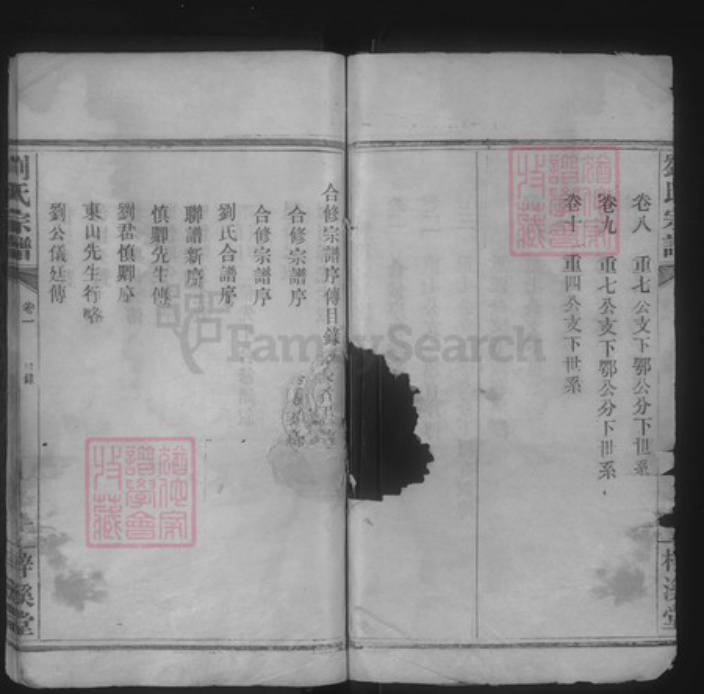 劉氏宗譜
卷八 重七公支下鄂公分下世系
卷九 重七公支下鄂公分下世系
卷十 重四公支下世系
梓溪堂
合修宗譜序傳目錄
合修宗譜序
合修宗譜序
劉氏合譜序
聯譜新序
慎卿先生傳
劉君慎卿序
東山先生行略
劉公儀廷傳
劉氏宗譜
卷一
目錄
梓溪堂
FamilySearch